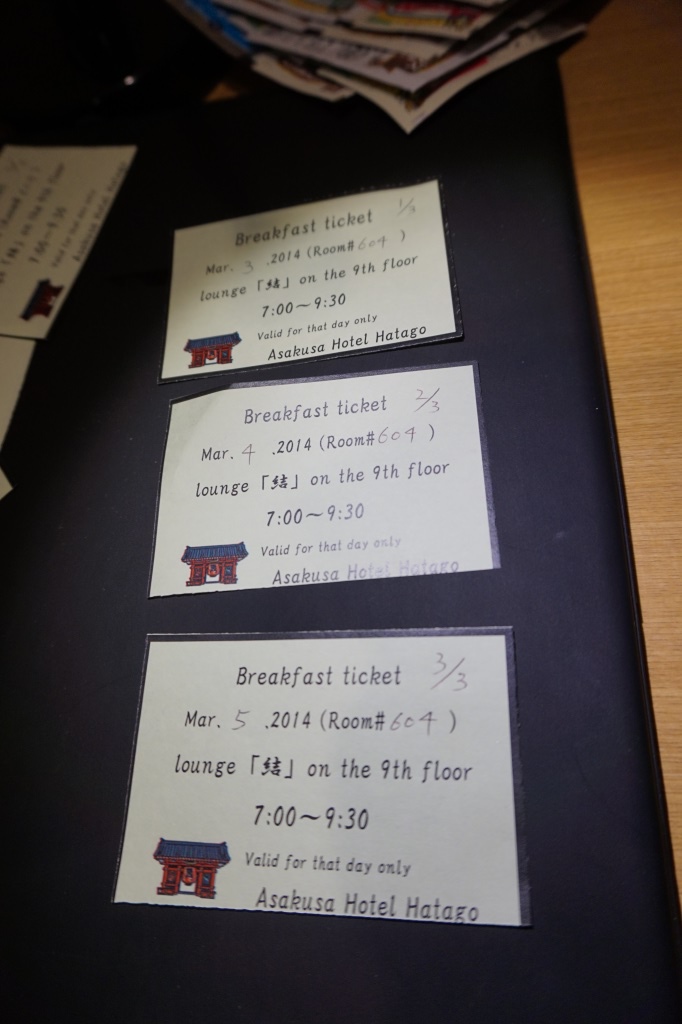 Breakfast ticket 1/3
Mar. 3 .2014 (Room# 604 )
lounge「結」on the 9th floor
7:00～9:30
Valid for that day only
Asakusa Hotel Hatago
Breakfast ticket 2/3
Mar. 4 .2014 (Room# 604 )
lounge「結」on the 9th floor
7:00～9:30
Valid for that day only
Asakusa Hotel Hatago
Breakfast ticket 3/3
Mar. 5 .2014 (Room# 604 )
lounge「結」on the 9th floor
7:00～9:30
Valid for that day only
Asakusa Hotel Hatago
on the 9th floor
7:00～9:30